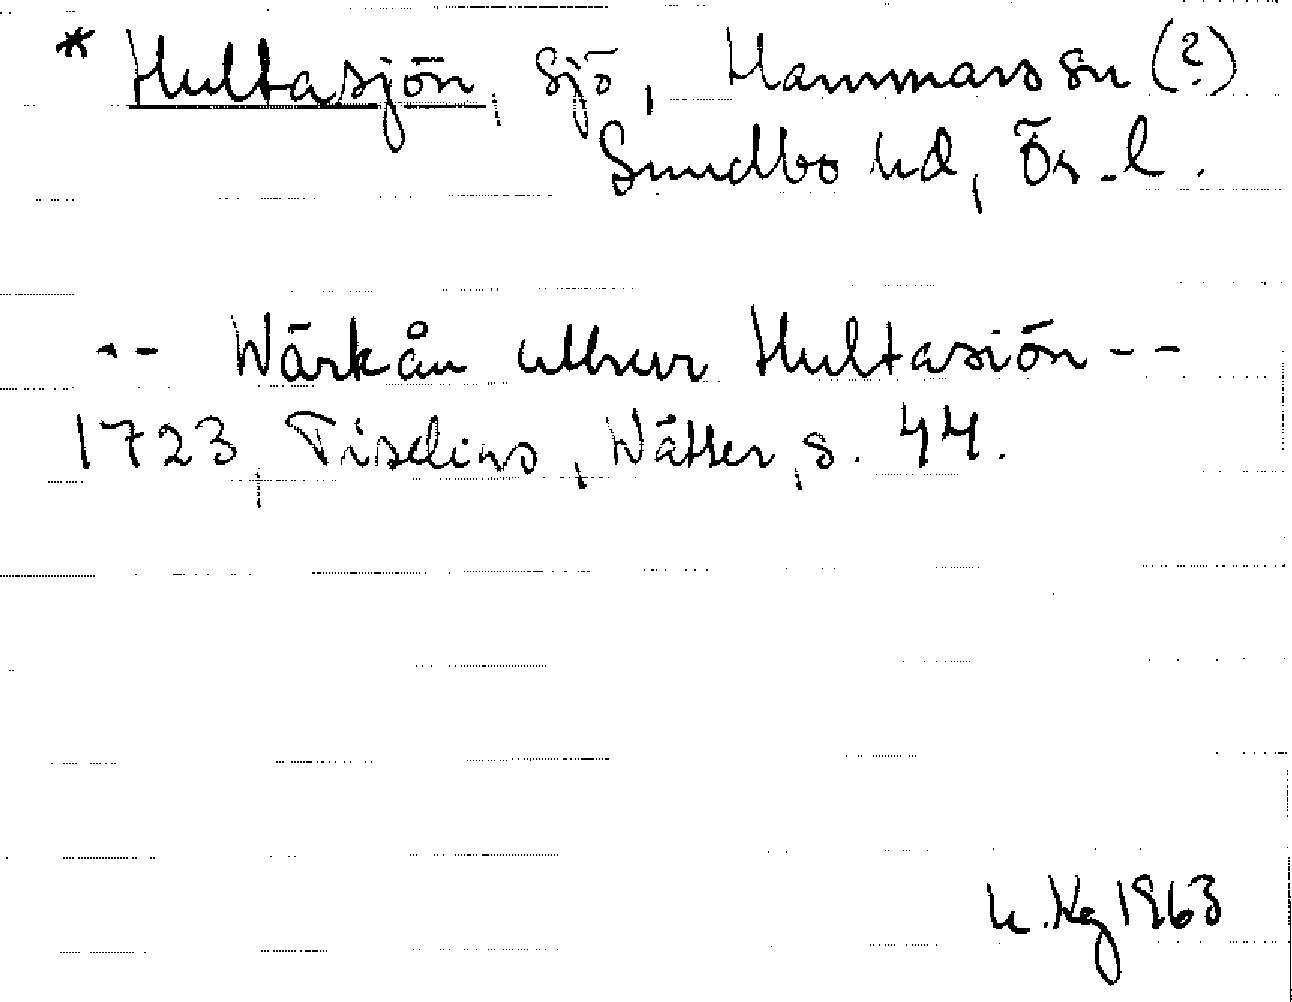 * Hultasjön, sjö, Hammars sn (?)
Sundbo hd, Ör. l.
-- Wärkån uthur Hultasiön --
1723, Tiselius, Wätter, s. 44.
h. Kg 1963